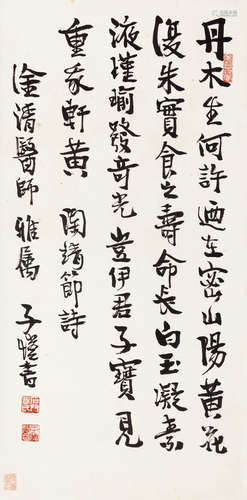 丹木生何許迺在密山陽黃花
復朱實食之壽命長白玉凝素
液瑾瑜發奇光豈伊君子寶見
重我軒黃　陶靖節詩
淦清醫師雅屬　子愷書